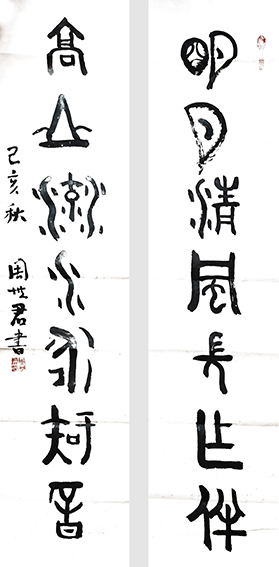 明月清風長作伴
高山流水有知音
己亥秋 周世君書